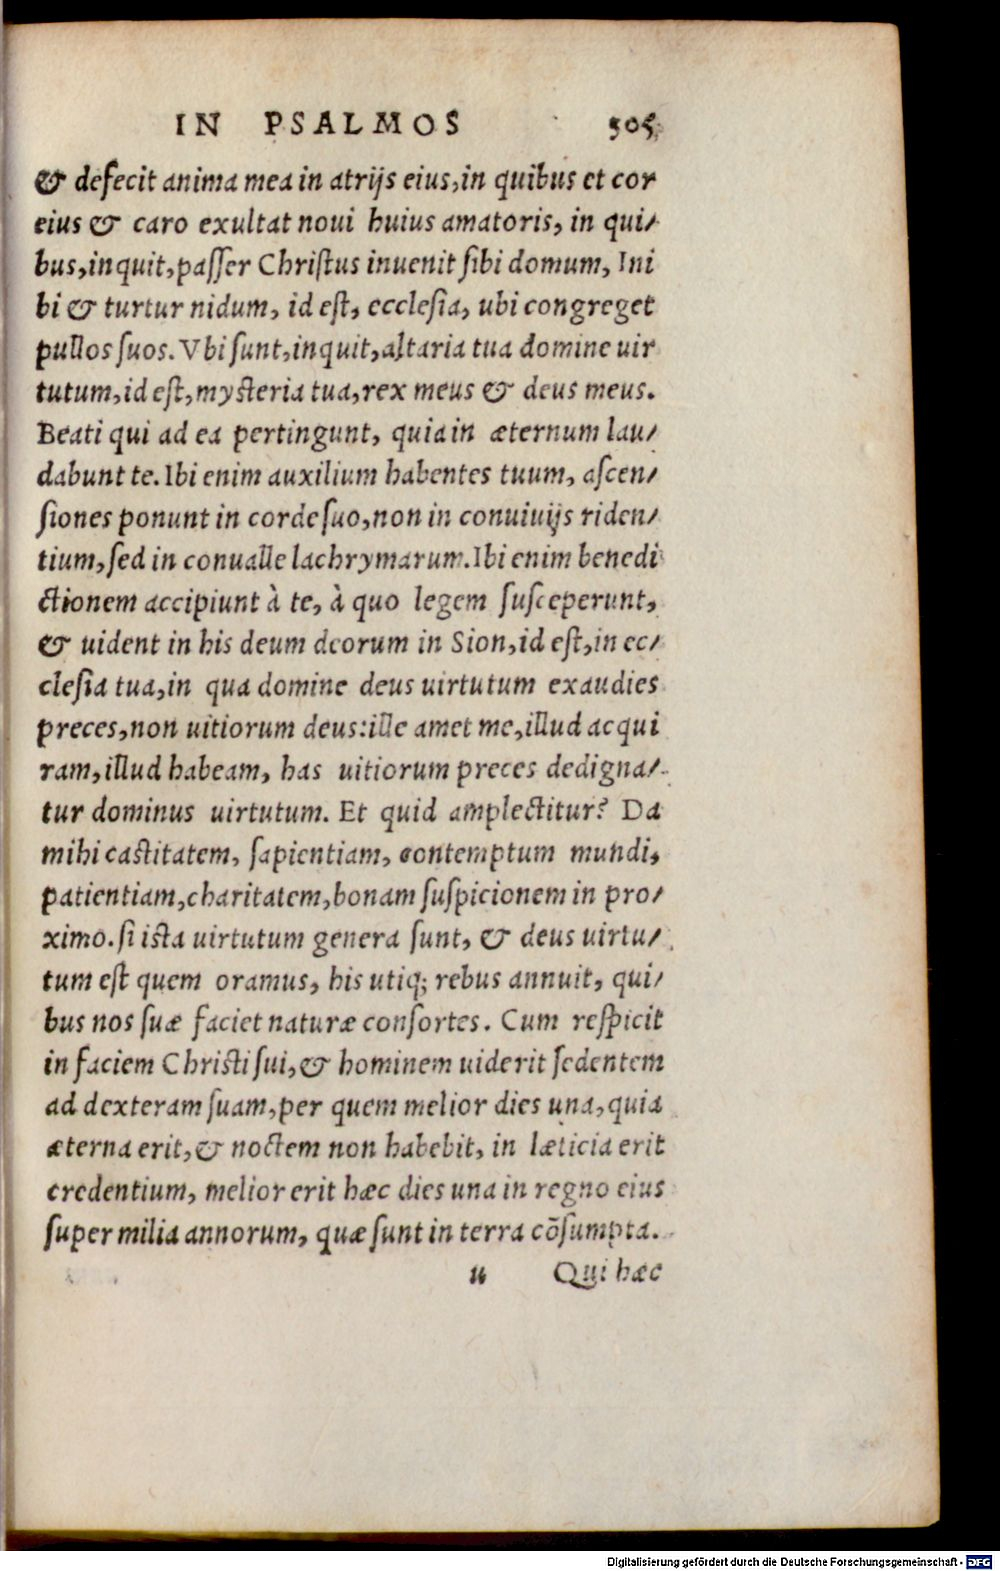 IN PSALMOS 505
& defecit anima mea in atrijs eius, in quibus et cor
eius & caro exultat noui huius amatoris, in qui/
bus, inquit, paſſer Chriſtus inuenit ſibi domum, Ini
bi & turtur nidum, id eſt, eccleſia, ubi congreget
pullos ſuos. Vbi ſunt, inquit, altaria tua domine uir
tutum, id eſt, myſteria tua, rex meus & deus meus.
Beati qui ad ea pertingunt, quia in æternum lau/
dabunt te. Ibi enim auxilium habentes tuum, aſcen/
ſiones ponunt in corde ſuo, non in conuiuijs riden/
tium, ſed in conualle lachrymarum. Ibi enim benedi
ctionem accipiunt à te, à quo legem ſuſceperunt,
& uident in his deum deorum in Sion, id eſt, in ec/
cleſia tua, in qua domine deus uirtutum exaudies
preces, non uitiorum deus: ille amet me, illud acqui
ram, illud habeam, has uitiorum preces dedigna/
tur dominus uirtutum. Et quid amplectitur? Da
mihi caſtitatem, ſapientiam, contemptum mundi,
patientiam, charitatem, bonam ſuſpicionem in pro/
ximo. ſi iſta uirtutum genera ſunt, & deus uirtu/
tum eſt quem oramus, his utiq; rebus annuit, qui/
bus nos ſuæ faciet naturæ conſortes. Cum reſpicit
in faciem Chriſti ſui, & hominem uiderit ſedentem
ad dexteram ſuam, per quem melior dies una, quia
æterna erit, & noctem non habebit, in læticia erit
credentium, melior erit hæc dies una in regno eius
ſuper milia annorum, quæ ſunt in terra cōſumpta.
u Qui hæc
Digitalisierung gefördert durch die Deutsche Forschungsgemeinschaft - DFG